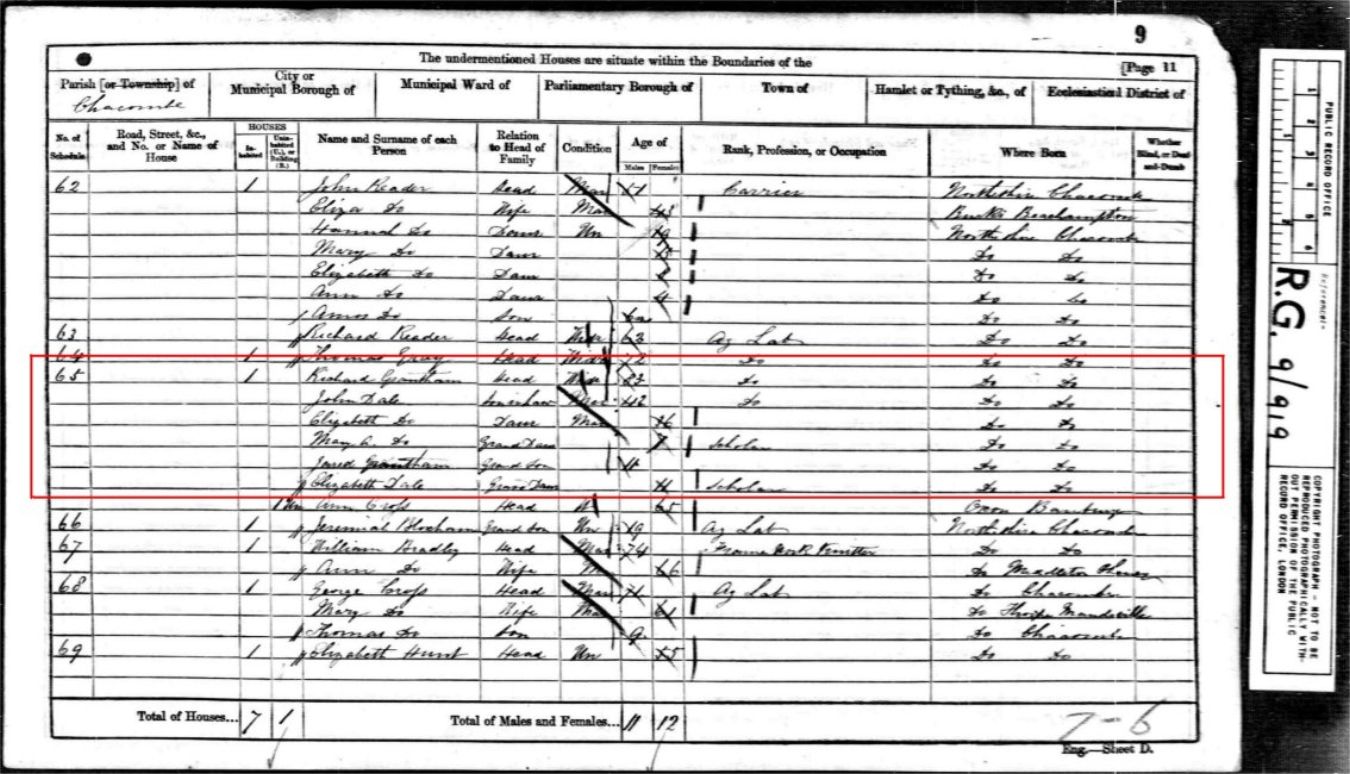 9
The undermentioned Houses are situate within the Boundaries of the
[Page 11
Parish [or Township] of
City or Municipal Borough of
Municipal Ward of
Parliamentary Borough of
Town of
Hamlet or Tything, &c., of
Ecclesiastical District of
Chacombe
No. of Schedule
Road, Street, &c., and No. or Name of House
HOUSES
In-habited
Unin-habited (U.), or Building (B.)
Name and Surname of each Person
Relation to Head of Family
Condition
Age of
Males
Females
Rank, Profession, or Occupation
Where Born
Whether Blind, or Deaf-and-Dumb
62 1 John Reader Head Mar Carrier Northshire Chacombe
Eliza Do Wife Mar Bucks Beachampton
Hannah Do Daur Un 19 Northshire Chacombe
Mary Do Daur Do Do
Elizabeth Do Daur Do Do
Ann Do Daur 4 Do Do
Amos Do Son Do Do
63 Richard Reader Head 63 Ag Lab Do Do
64 1 Thomas Gray Head Widr 72 Do Do Do
65 1 Richard Grantham Head Do Do Do
John Dale Son in law Mar 42 Do Do Do
Elizabeth Do Daur Mar Do Do
Mary A. Do Grand Daur 7 Scholar Do Do
Jared Grantham Grand Son 11 Do Do
Elizabeth Dale Grand Daur Scholar Do Do
Ann Cross Head 65 Oxon Banbury
66 1 Jeremiah Grand Son Un 19 Ag Lab Northshire Chacombe
67 1 William Bradley Head Mar 74 Frame Work Knitter Do Do
Ann Do Wife 66 Do
68 1 George Cross Head Mar 71 Ag Lab Do Chacombe
Mary Do Wife Mar Do Mandeville
Thomas Do Son 9 Do Chacombe
69 1 Elizabeth Hunt Head Un Do Do
Total of Houses... 7 1
Total of Males and Females... 11 12
7-6
Eng.—Sheet D.
PUBLIC RECORD OFFICE
1 2 3 4 5 6
Reference:-
R.G. 9/919
COPYRIGHT PHOTOGRAPH - NOT TO BE REPRODUCED PHOTOGRAPHICALLY WITHOUT PERMISSION OF THE PUBLIC RECORD OFFICE, LONDON